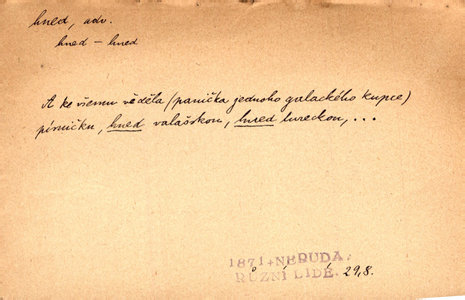 hned, adv.
hned – hned
A ke všemu věděla (panička jednoho galackého kupce)
písničku, hned valašskou, hned tureckou, ...
1871 NERUDA,
RŮZNÍ LIDÉ. 29,8.